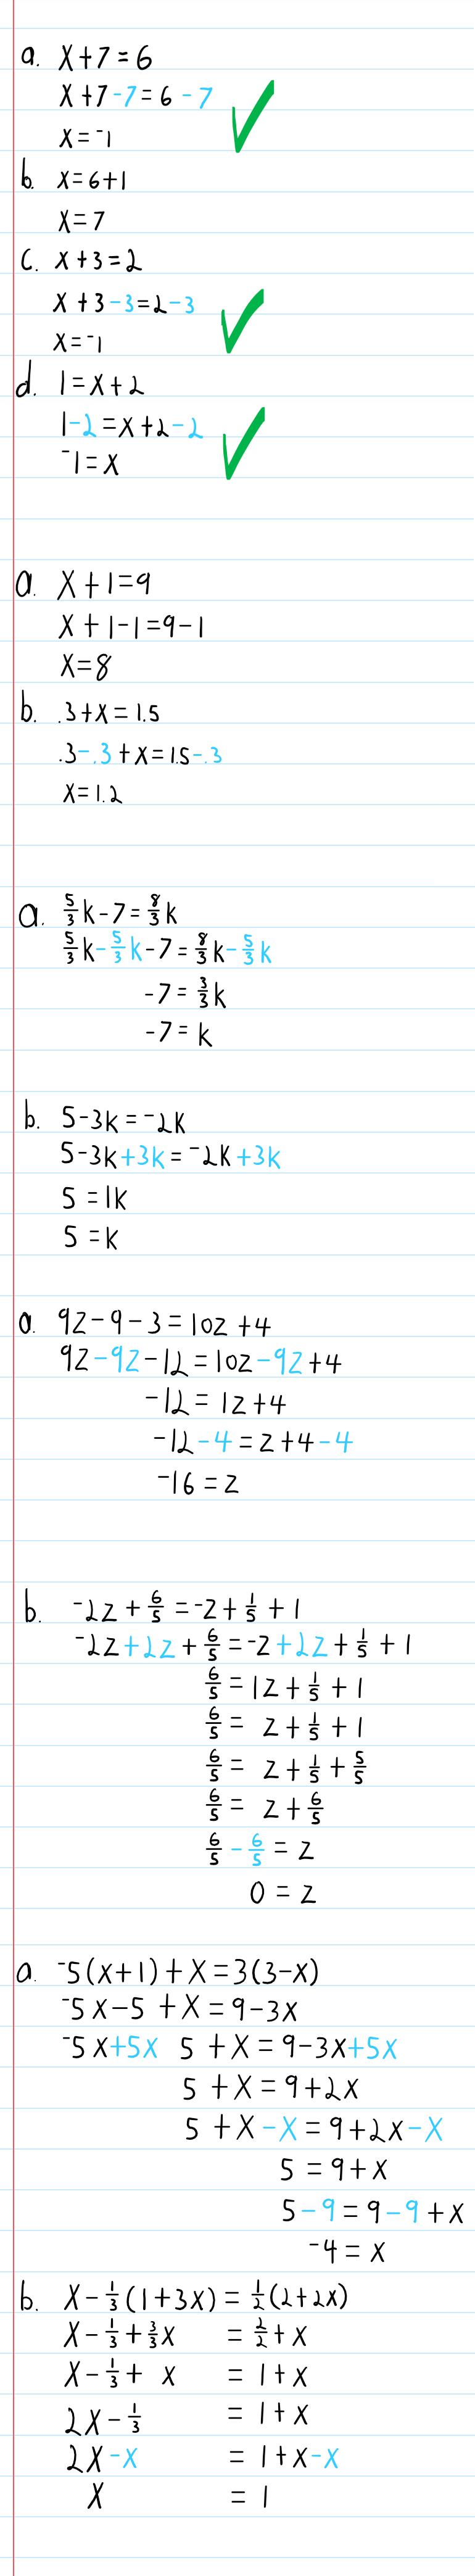 a. x+7=6
x+7-7=6-7
x=⁻1
b. x=6+1
x=7
c. x+3=2
x+3-3=2-3
x=⁻1
d. 1=x+2
1-2=x+2-2
⁻1=x
a. x+1=9
x+1-1=9-1
x=8
b. .3+x=1.5
.3-.3+x=1.5-.3
x=1.2
a. 5/3 k-7=8/3 k
5/3 k-5/3 k-7=8/3 k-5/3 k
-7=3/3 k
-7=k
b. 5-3k=⁻2k
5-3k+3k=⁻2k+3k
5=1k
5=k
a. 9z-9-3=10z+4
9z-9z-12=10z-9z+4
-12=1z+4
-12-4=z+4-4
-16=z
b. ⁻2z+6/5=-z+1/5+1
⁻2z+2z+6/5=-z+2z+1/5+1
6/5=1z+1/5+1
6/5=z+1/5+1
6/5=z+1/5+5/5
6/5=z+6/5
6/5-6/5=z
0=z
a. ⁻5(x+1)+x=3(3-x)
⁻5x-5+x=9-3x
⁻5x+5x 5+x=9-3x+5x
5+x=9+2x
5+x-x=9+2x-x
5=9+x
5-9=9-9+x
⁻4=x
b. x-1/3(1+3x)=1/2(2+2x)
x-1/3+3/3x=2/2+x
x-1/3+x=1+x
2x-1/3=1+x
2x-x=1+x-x
x=1